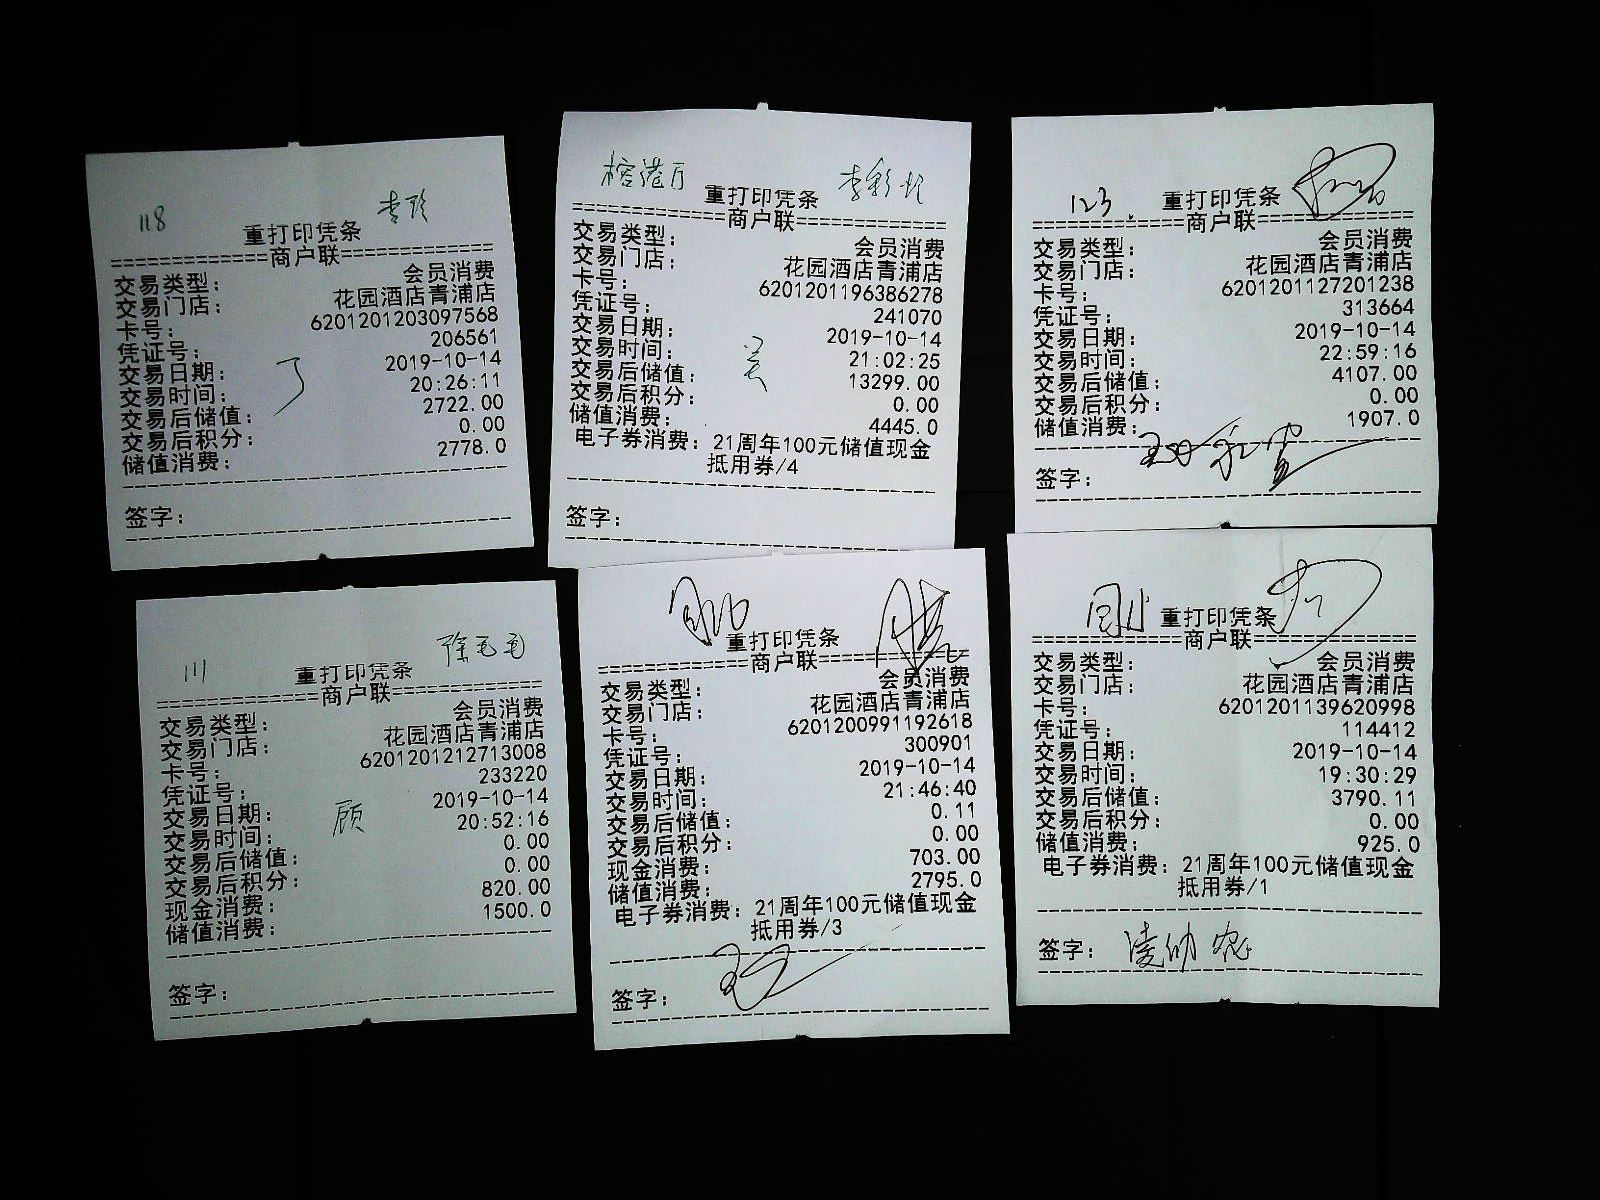 118
李玲
重打印凭条
============商户联============
交易类型： 会员消费
交易门店： 花园酒店青浦店
卡号： 6201201203097568
凭证号： 206561
交易日期： 2019-10-14
交易时间： 20:26:11
交易后储值： 2722.00
交易后积分： 0.00
储值消费： 2778.0
丁
签字：
榕港厅
重打印凭条
============商户联============
交易类型： 会员消费
交易门店： 花园酒店青浦店
卡号： 6201201196386278
凭证号： 241070
交易日期： 2019-10-14
交易时间： 21:02:25
交易后储值： 13299.00
交易后积分： 0.00
储值消费： 4445.0
电子券消费：21周年100元储值现金
抵用券/4
吴
签字：
123.
重打印凭条
============商户联============
交易类型： 会员消费
交易门店： 花园酒店青浦店
卡号： 6201201127201238
凭证号： 313664
交易日期： 2019-10-14
交易时间： 22:59:16
交易后储值： 4107.00
交易后积分： 0.00
储值消费： 1907.0
签字：
111
徐毛毛
重打印凭条
============商户联============
交易类型： 会员消费
交易门店： 花园酒店青浦店
卡号： 6201201212713008
凭证号： 233220
交易日期： 2019-10-14
交易时间： 20:52:16
交易后储值： 0.00
交易后积分： 0.00
现金消费： 820.00
储值消费： 1500.0
顾
签字：
重打印凭条
============商户联============
交易类型： 会员消费
交易门店： 花园酒店青浦店
卡号： 6201200991192618
凭证号： 300901
交易日期： 2019-10-14
交易时间： 21:46:40
交易后储值： 0.11
交易后积分： 0.00
现金消费： 703.00
储值消费： 2795.0
电子券消费：21周年100元储值现金
抵用券/3
签字：
重打印凭条
============商户联============
交易类型： 会员消费
交易门店： 花园酒店青浦店
卡号： 6201201139620998
凭证号： 114412
交易日期： 2019-10-14
交易时间： 19:30:29
交易后储值： 3790.11
交易后积分： 0.00
储值消费： 925.0
电子券消费：21周年100元储值现金
抵用券/1
签字：